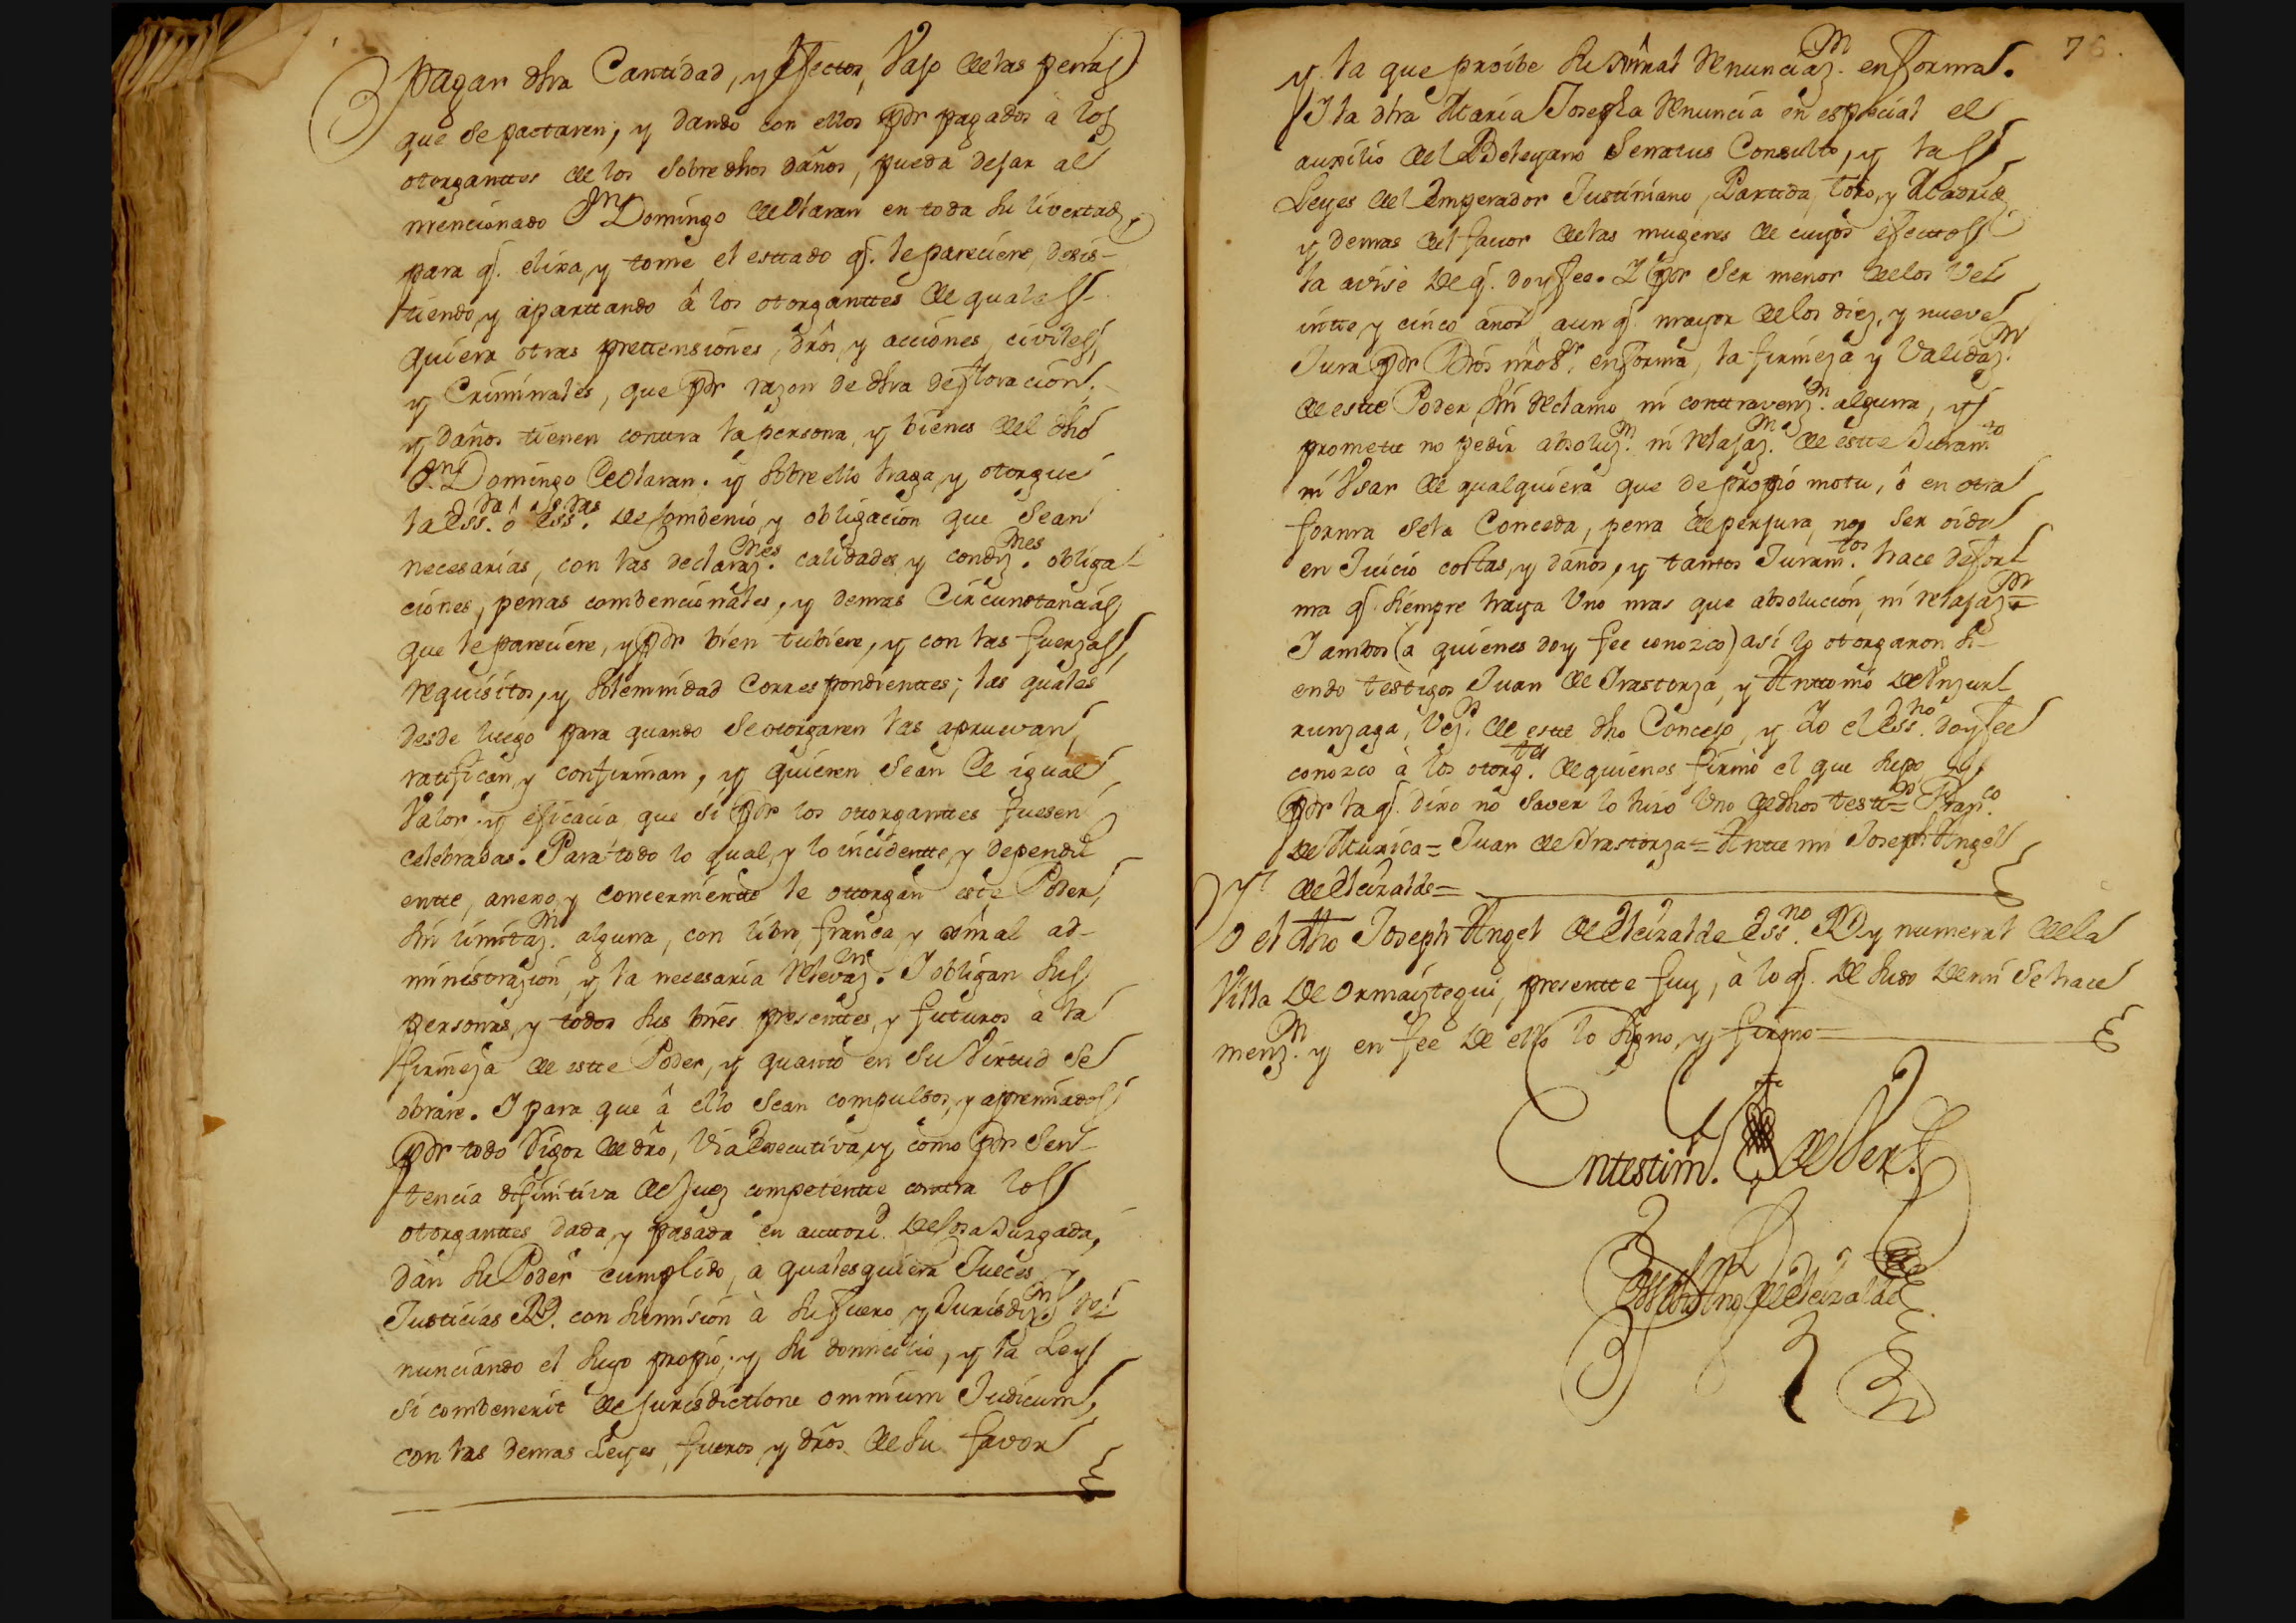 pagar dha Cantidad, y efectos, vajo de las penas
que se pactaren, y dando con ellos por pagados à los
otorganttes de los sobredhos daños, pueda dejar al
mencionado Dn Domingo de Olaran en toda su livertad,
para q. elixa, y tome el esttado q. le pareciere, desis-
tiendo, y aparttando â los otorganttes de quales-
quiera otras prettensiones, dros, y acciones, civiles,
y Criminales, que por razon de dha desfloracion,
y daños tienen conttra la persona, y bienes del dho
Dn Domingo de Olaran. y sobre ello haga, y otorgue
la Essda ô Essras de combenio, y obligacion que sean
necesarias, con las declaraznes. calidades, y condiznes. obliga-
ciones, penas combencionales, y demas Circunstancias
que le pareciere, y por bien tubiere, y con las fuerzas,
requisitos, y solemnidad Correspondienttes; las quales
desde luego para quando se otorgaren las apruevan,
ratifican, y confirman, y quieren sean de igual
valor y eficacia, que si por los otorganttes fuesen
celebradas. Para todo lo qual, y lo incidentte, y dependi
entte, anexo, y concernientte le ottorgan este Poder,
sin limitazn. alguna, con libre, franca, y xeñral ad-
ministrazion, y la necesaria relevazn. I obligan sus
personas, y todos sus vñes presenttes, y futuros à la
firmeza de estte Poder, y quanto en su virtud se
obrare. I para que â ello sean compulsos, y apremiados
por todo rigor de dro, via executiva, y como por sen-
tencia difinitiva de Juez competentte conttra los
otorganttes dada, y pasada en auttori. de cosa Juzgada,
dan su Poder cumplido, a qualesquiera Jueces, y
Justicias RR. con sumision à su fuero, y Jurisdizn. re
nunciando el suyo propio, y su domicilio, y la Ley
si combenerit de Jurisdictione omnium Judicum,
con las demas Leyes, fueros, y dros de su favor
76.
y la que proibe su xeñral renunciazn. en forma.
I la dha Maria Josepha renuncia en especial el
auxilio del Beleyano Senatus Consulto, y las
Leyes del Emperador Justiniano, Partida, Toro, y Madrid,
y demas del favor de las mugeres de cuyos efecttos
la avisè de q. doy fee. I por ser menor de los ve
intte y cinco años, aun q. mayor de los diez, y nueve
Jura por Dios nro Sr. en forma, la firmeza y validazn.
de estte Poder, sin reclamo, ni conttravenzn. alguna, y
promette no pedir absoluzn. ni relajazn. de estte Juramto
ni usar de qualquiera que de propio motu, ô en otra
forma se la Conceda, pena de perjura, no ser oida
en Juicio costas, y daños, y tantos Juramtos. hace de for
ma q. siempre haya uno mas que absolucion, ni relajazn=
I ambos (a quienes doy fee conozco) asi lo otorgaron si-
endo testigos Juan de Irastorza, y Anttonio de Inzur
runzaga, vezs. de estte dho Concejo, y Yo el Essno. doy fee
conozco à los otorgtes. de quienes firmò el que supo, y
por la q. dixo no saver lo hizo uno de dhos testigs= Franco.
de Muxica= Juan de Irastorza= Antte mi Joseph Angel
de Eleizalde=
Yo el dho Joseph Angel de Eleizalde Essno. R. y numeral de la
Villa de Ormaiztegui, presentte fuy, à lo q. de suso de mi se hace
menzn. y en fee de ello lo signo, y firmo=
En testim. de Ver.
Joseph Angl de Eleizalde